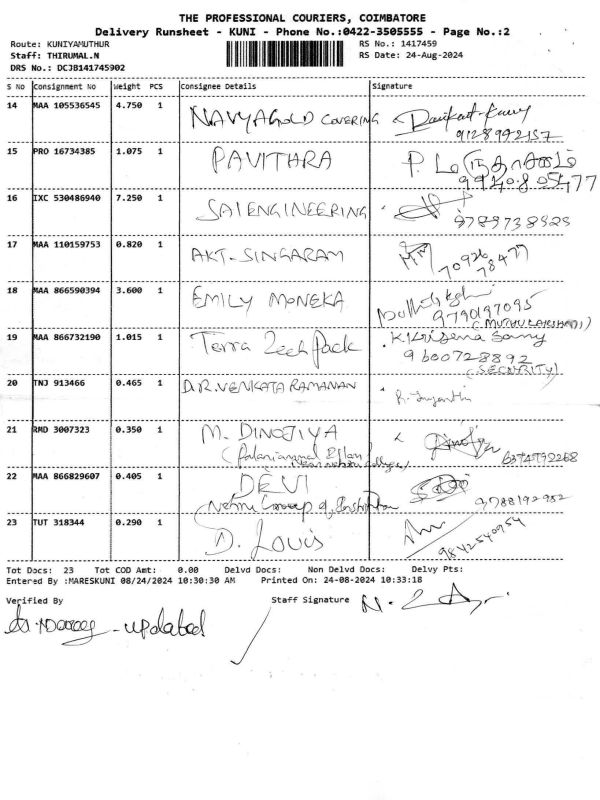 THE PROFESSIONAL COURIERS, COIMBATORE
Delivery Runsheet - KUNI - Phone No.:0422-3505555 - Page No.:2
Route: KUNIYAMUTHUR RS No.: 1417459
Staff: THIRUMAL.N RS Date: 24-Aug-2024
DRS No.: DCJB141745902
S No Consignment No Weight PCS Consignee Details Signature
14 MAA 105536545 4.750 1 NAVYAGOLD COVERING
9128992157
15 PRO 16734385 1.075 1 PAVITHRA P.
9940805477
16 IXC 530486940 7.250 1 SAI ENGINEERING
9789738323
17 MAA 110159753 0.820 1 AKT-SINGARAM
70926
78477
18 MAA 866590394 3.600 1 EMILY MONEKA
9790197095
(MUTHULAKSHMI)
19 MAA 866732190 1.015 1 Terra Zech Pack K. Krisena Samy
9600728892
(SECURITY)
20 TNJ 913466 0.465 1 D.R.VENKATA RAMANAN
21 RMD 3007323 0.350 1 M. DINOJIYA
(Palaniammal Illam
Near Nehru College) 6374792268
22 MAA 866829607 0.405 1 DEVI
Nehru Group of Institution 9788192952
23 TUT 318344 0.290 1 D. Louis
9842540954
Tot Docs: 23 Tot COD Amt: 0.00 Delvd Docs: Non Delvd Docs: Delvy Pts:
Entered By :MARESKUNI 08/24/2024 10:30:30 AM Printed On: 24-08-2024 10:33:18
Verified By Staff Signature
- updated